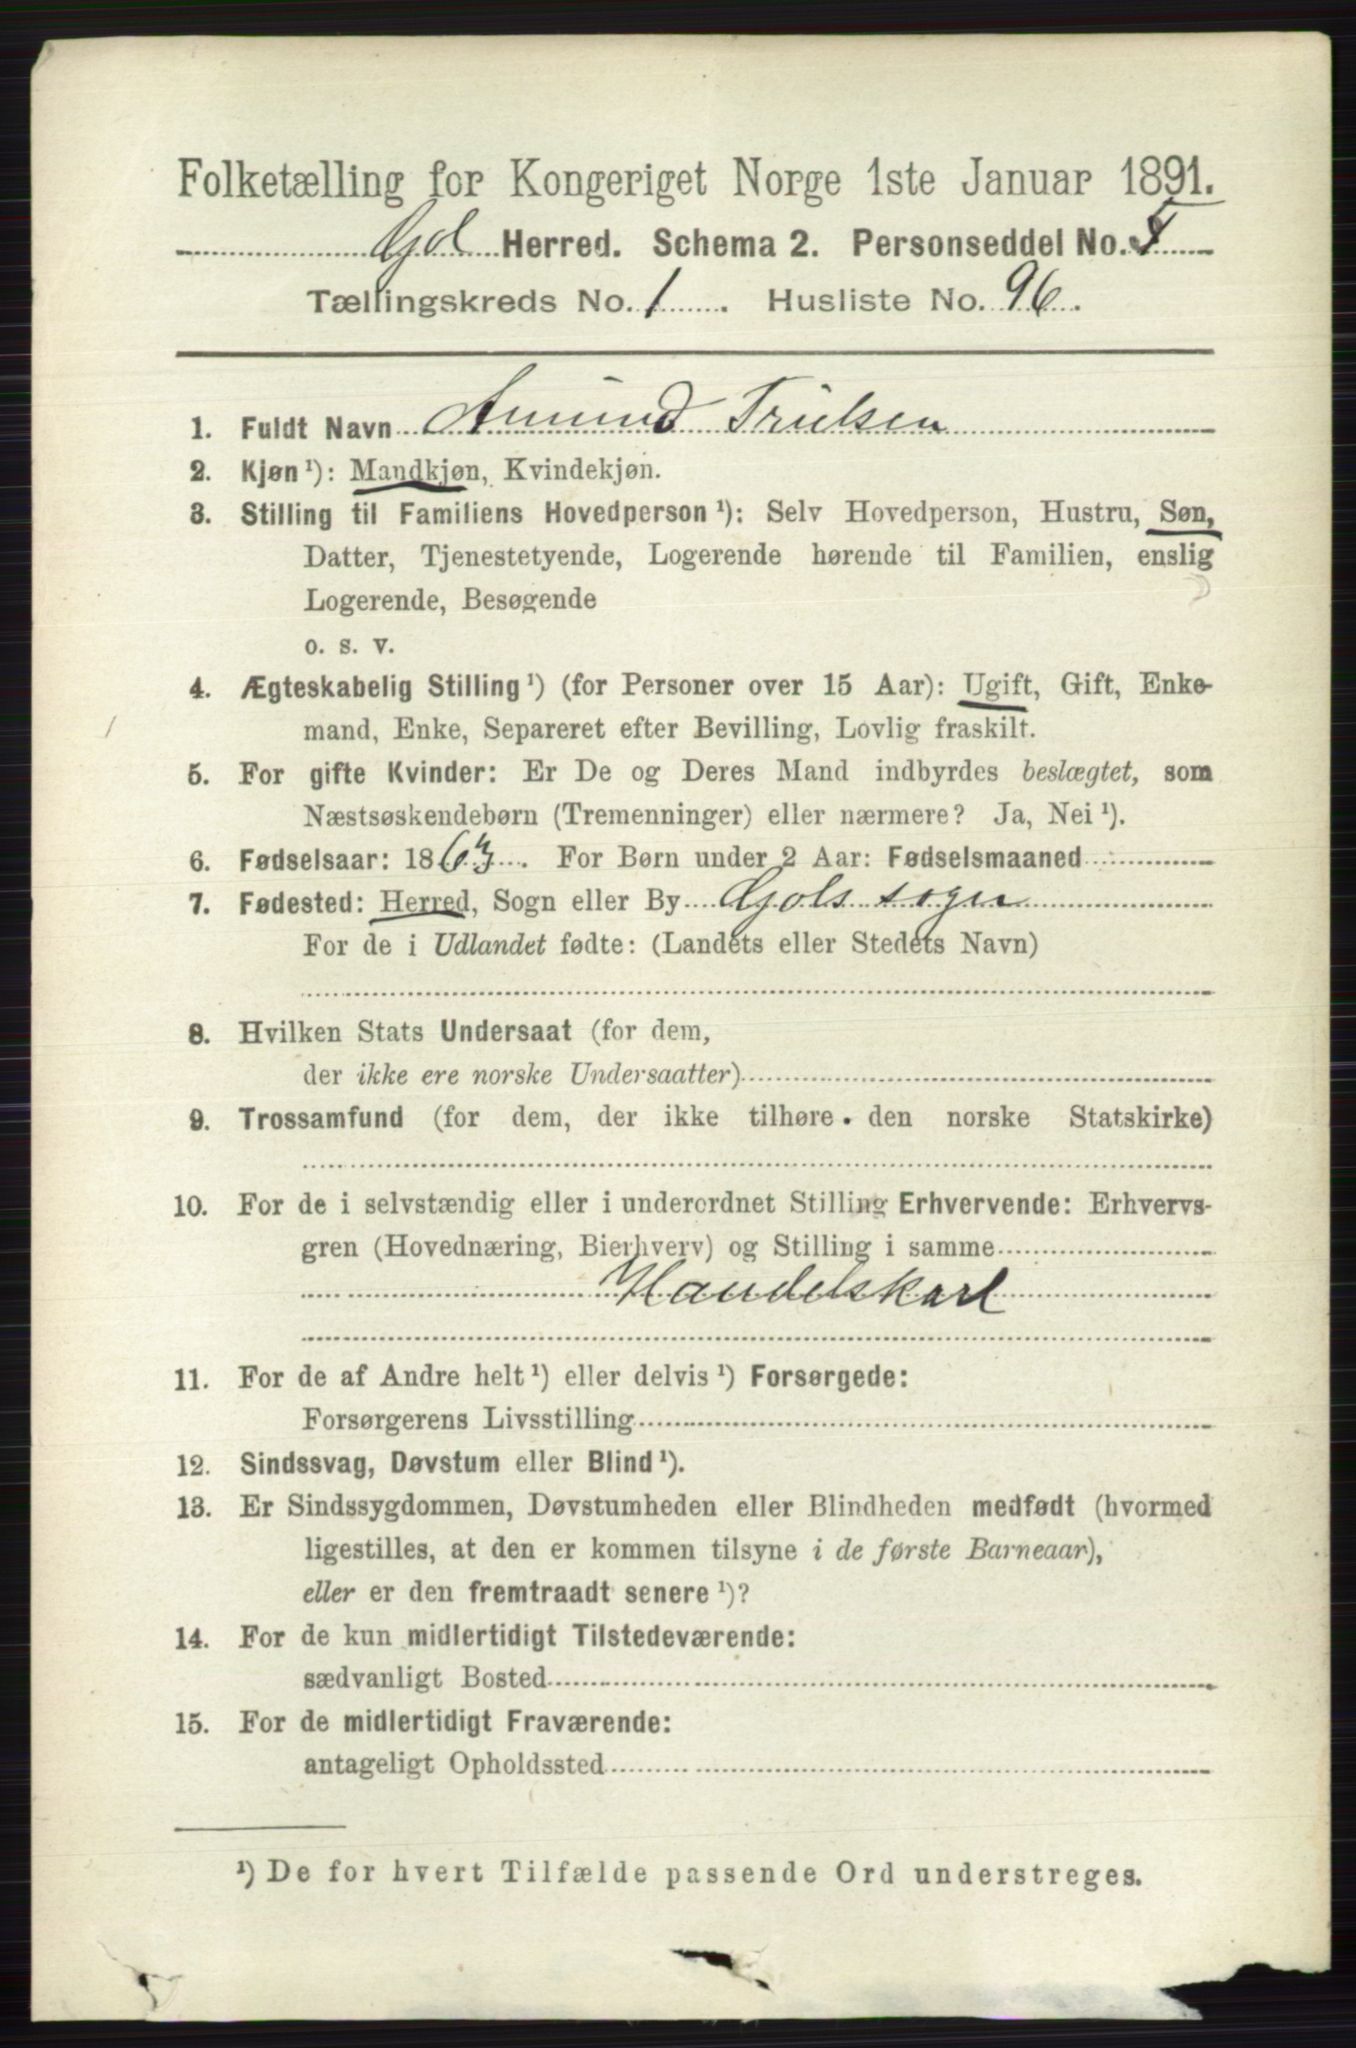 Folketælling for Kongeriget Norge 1ste Januar 1891.
Gol Herred. Schema 2. Personseddel No. 5
Tællingskreds No. 1. Husliste No. 96.
1. Fuldt Navn Amund Trulsen
2. Kjøn ¹): Mandkjøn, Kvindekjøn.
3. Stilling til Familiens Hovedperson ¹): Selv Hovedperson, Hustru, Søn,
Datter, Tjenestetyende, Logerende hørende til Familien, enslig
Logerende, Besøgende
o. s. v.
4. Ægteskabelig Stilling ¹) (for Personer over 15 Aar): Ugift, Gift, Enke-
mand, Enke, Separeret efter Bevilling, Lovlig fraskilt.
5. For gifte Kvinder: Er De og Deres Mand indbyrdes beslægtet, som
Næstsøskendebørn (Tremenninger) eller nærmere? Ja, Nei ¹).
6. Fødselsaar: 1863. For Børn under 2 Aar: Fødselsmaaned
7. Fødested: Herred, Sogn eller By Gols sogn
For de i Udlandet fødte: (Landets eller Stedets Navn)
8. Hvilken Stats Undersaat (for dem,
der ikke ere norske Undersaatter)
9. Trossamfund (for dem, der ikke tilhøre den norske Statskirke)
10. For de i selvstændig eller i underordnet Stilling Erhvervende: Erhvervs-
gren (Hovednæring, Bierhverv) og Stilling i samme
Handelskarl
11. For de af Andre helt ¹) eller delvis ¹) Forsørgede:
Forsørgerens Livsstilling
12. Sindssvag, Døvstum eller Blind ¹).
13. Er Sindssygdommen, Døvstumheden eller Blindheden medfødt (hvormed
ligestilles, at den er kommen tilsyne i de første Barneaar),
eller er den fremtraadt senere ¹)?
14. For de kun midlertidigt Tilstedeværende:
sædvanligt Bosted
15. For de midlertidigt Fraværende:
antageligt Opholdssted
¹) De for hvert Tilfælde passende Ord understreges.